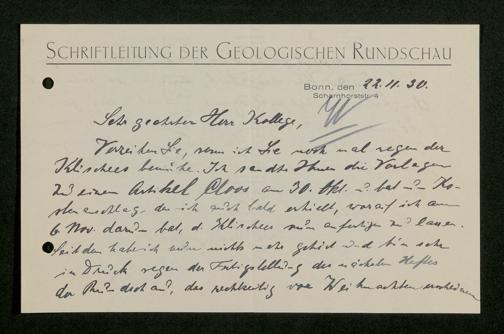 SCHRIFTLEITUNG DER GEOLOGISCHEN RUNDSCHAU
Bonn, den 22.11.30.
Scharnhorststr. 4
Sehr geehrter Herr Kollege,
Verzeihen Sie, wenn ich Sie noch mal wegen der
Klischees bemühe. Ich sandte Ihnen die Vorlagen
zu einem Artikel Cloos am 30. Okt. u. bat um Ko-
stenanschlag, den ich auch bald erhielt, worauf ich am
6 Nov. darum bat, d. Klischees nun anfertigen zu lassen.
Seitdem habe ich nun nichts mehr gehört und bin sehr
in Druck wegen der Fertigstellung des nächsten Heftes
der Rundschau, das rechtzeitig vor Weihnachten erscheinen